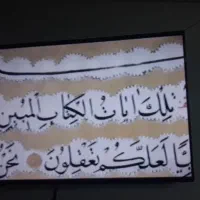 تِلْكَ اٰيَاتُ الْكِتَابِ الْمُبِينِ
يًّا لَعَلَّكُمْ تَعْقِلُونَ نَحْنُ